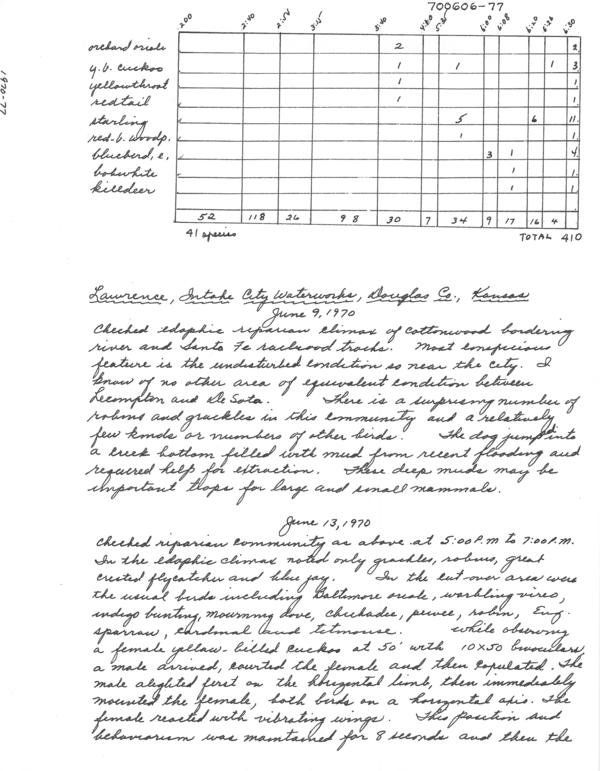 700606-77
1970-77
2:00 2:40 2:54 3:15 3:40 4:30 5:25 6:00 6:08 6:20 6:26 6:30
orchard oriole 2 2
y.b. cuckoo 1 1 1 3
yellowthroat 1 1
redtail 1 1
starling 5 6 11
red-b. woodp. 1 1
bluebird, e. 3 1 4
bobwhite 1 1
killdeer 1 1
52 118 26 98 30 7 34 9 17 16 4
41 species TOTAL 410
Lawrence, Intake City Waterworks, Douglas Co., Kansas
June 9, 1970
Checked edaphic riparian climax of cottonwood bordering
river and Santa Fe railroad tracks. Most conspicuous
feature is the undisturbed condition so near the city. I
know of no other area of equivalent condition between
Lecompton and De Soto. There is a surprising number of
robins and grackles in this community and a relatively
few kinds or numbers of other birds. The dog jumped into
a creek bottom filled with mud from recent flooding and
required help for extraction. These deep muds may be
important traps for large and small mammals.
June 13, 1970
Checked riparian community as above at 5:00 P.M to 7:00 P.M.
In the edaphic climax noted only grackles, robins, great
crested flycatcher and blue jay. In the cut over area were
the usual birds including Baltimore oriole, warbling vireo,
indigo bunting, mourning dove, chickadee, pewee, robin, Eng.
sparrow, cardinal and titmouse. While observing
a female yellow-billed cuckoo at 50' with 10X50 binoculars,
a male arrived, courted the female and then copulated. The
male alighted first on the horizontal limb, then immediately
mounted the female, both birds on a horizontal axis. The
female reacted with vibrating wings. This position and
behaviorism was maintained for 8 seconds and then the